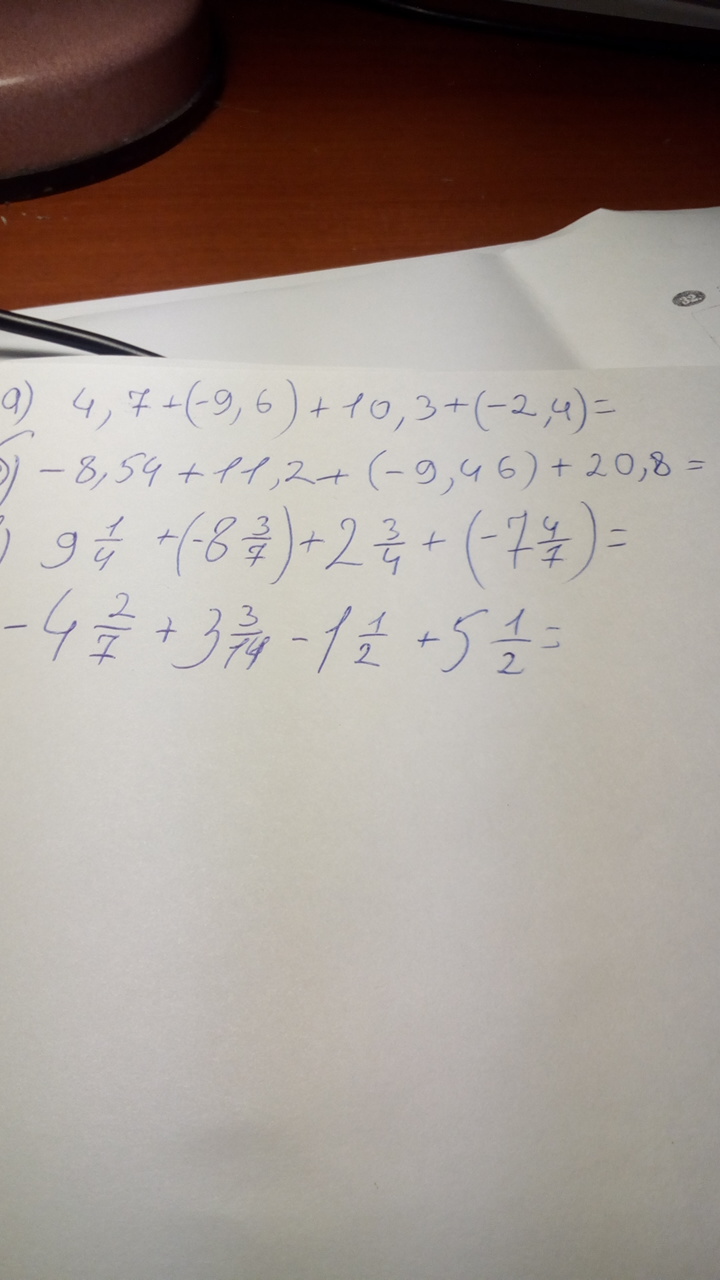 32.
а) 4,7+(-9,6)+10,3+(-2,4)=
б) -8,54+11,2+(-9,46)+20,8=
) 9 1/4 +(-8 3/7)+2 3/4+(-7 4/7)=
-4 2/7+3 3/14-1 1/2+5 1/2=